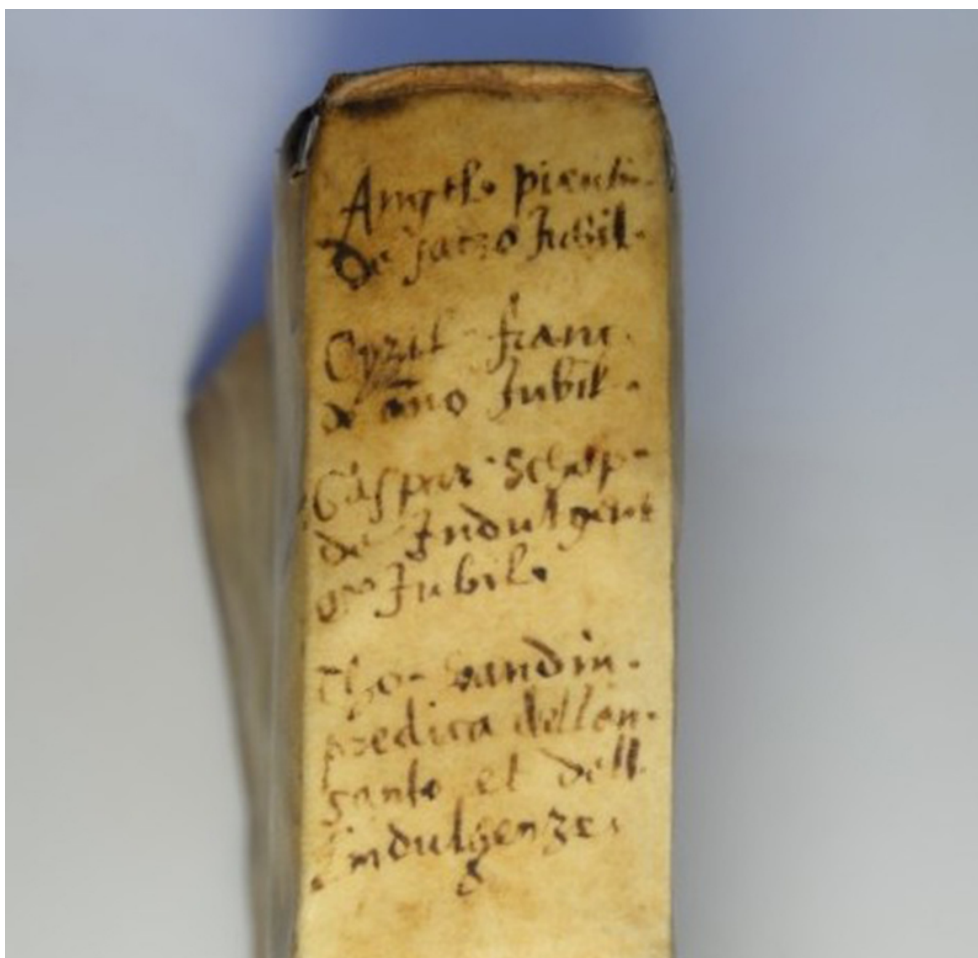 Angel. pientin.
De sacro Jubil.
Cyril. franc.
de año Jubil.
Caspar Schop-
de Indulgent
Jubil.
Tho. bandin.
predica dell'an.
santo et dell
Indulgenze.